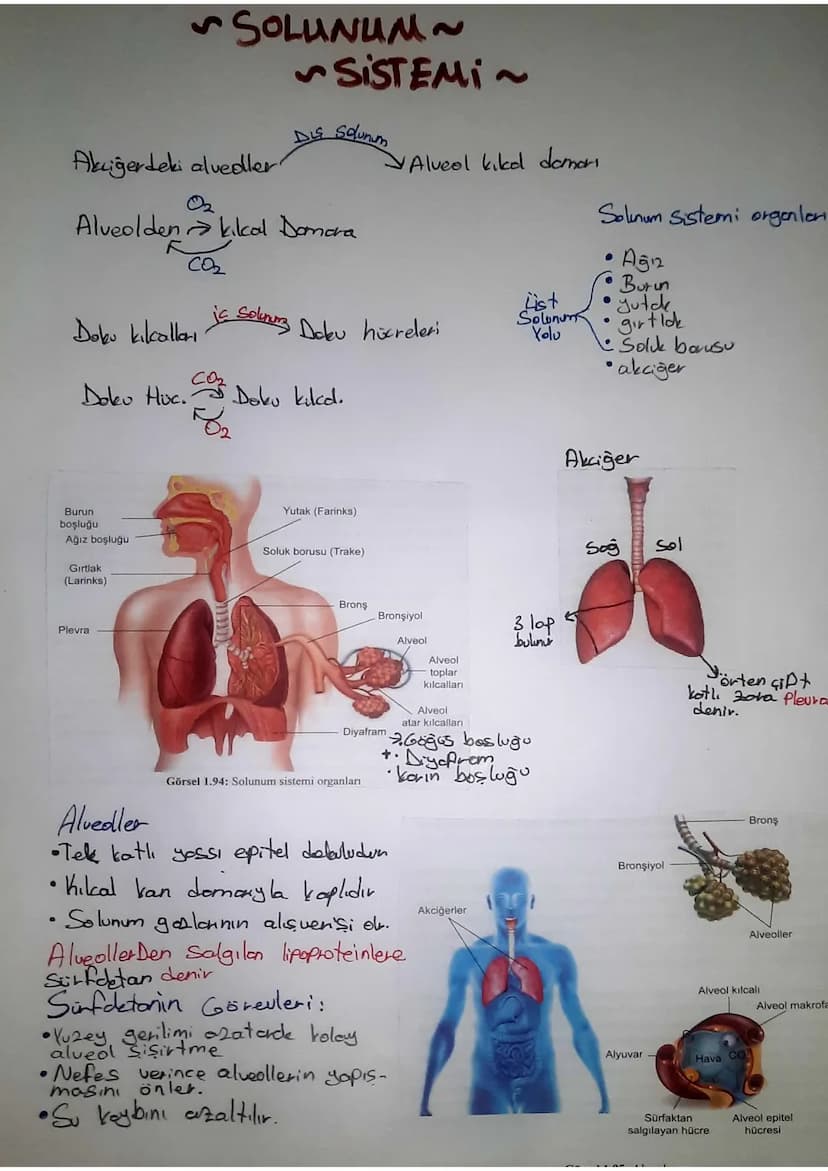 ~ SOLUNUM ~
~ SİSTEMİ ~
Dış Solunum
Akciğerdeki alveoller
Alveol kılcal damarı
O2
Alveolden → kılcal Damara
CO2
Solunum sistemi organları
• Ağız
• Burun
• yutak
• gırtlak
• Soluk borusu
• akciğer
Üst
Solunum
Yolu
iç Solunum
Doku kılcalları
Doku hücreleri
CO2
Doku Hüc.
Doku kılcal.
O2
Akciğer
Sağ
Sol
3 lop
bulunur
örten çift
katlı zara Pleura
denir.
Burun
boşluğu
Ağız boşluğu
Gırtlak
(Larinks)
Plevra
Yutak (Farinks)
Soluk borusu (Trake)
Bronş
Bronşiyol
Alveol
Alveol
toplar
kılcalları
Alveol
atar kılcalları
Diyafram
Göğüs boşluğu
Diyafram
Karın boşluğu
Görsel 1.94: Solunum sistemi organları
Alveoller
• Tek katlı yassı epitel
• Kılcal kan damarıyla kaplıdır
• Solunum gazlarının alışverişi olr.
AlveollerDen Salgılan lipoproteinlere
Sürfaktan denir
Sürfaktanın Görevleri:
• Yüzey gerilimi azatarak kolay
alveol şişirtme
• Nefes verince alveollerin yapış-
masını önler.
• Su kaybını azaltılır.
Akciğerler
Bronş
Bronşiyol
Alveoller
Alveol kılcalı
Alveol makrofa
Alyuvar
Hava
CO2
Sürfaktan
salgılayan hücre
Alveol epitel
hücresi